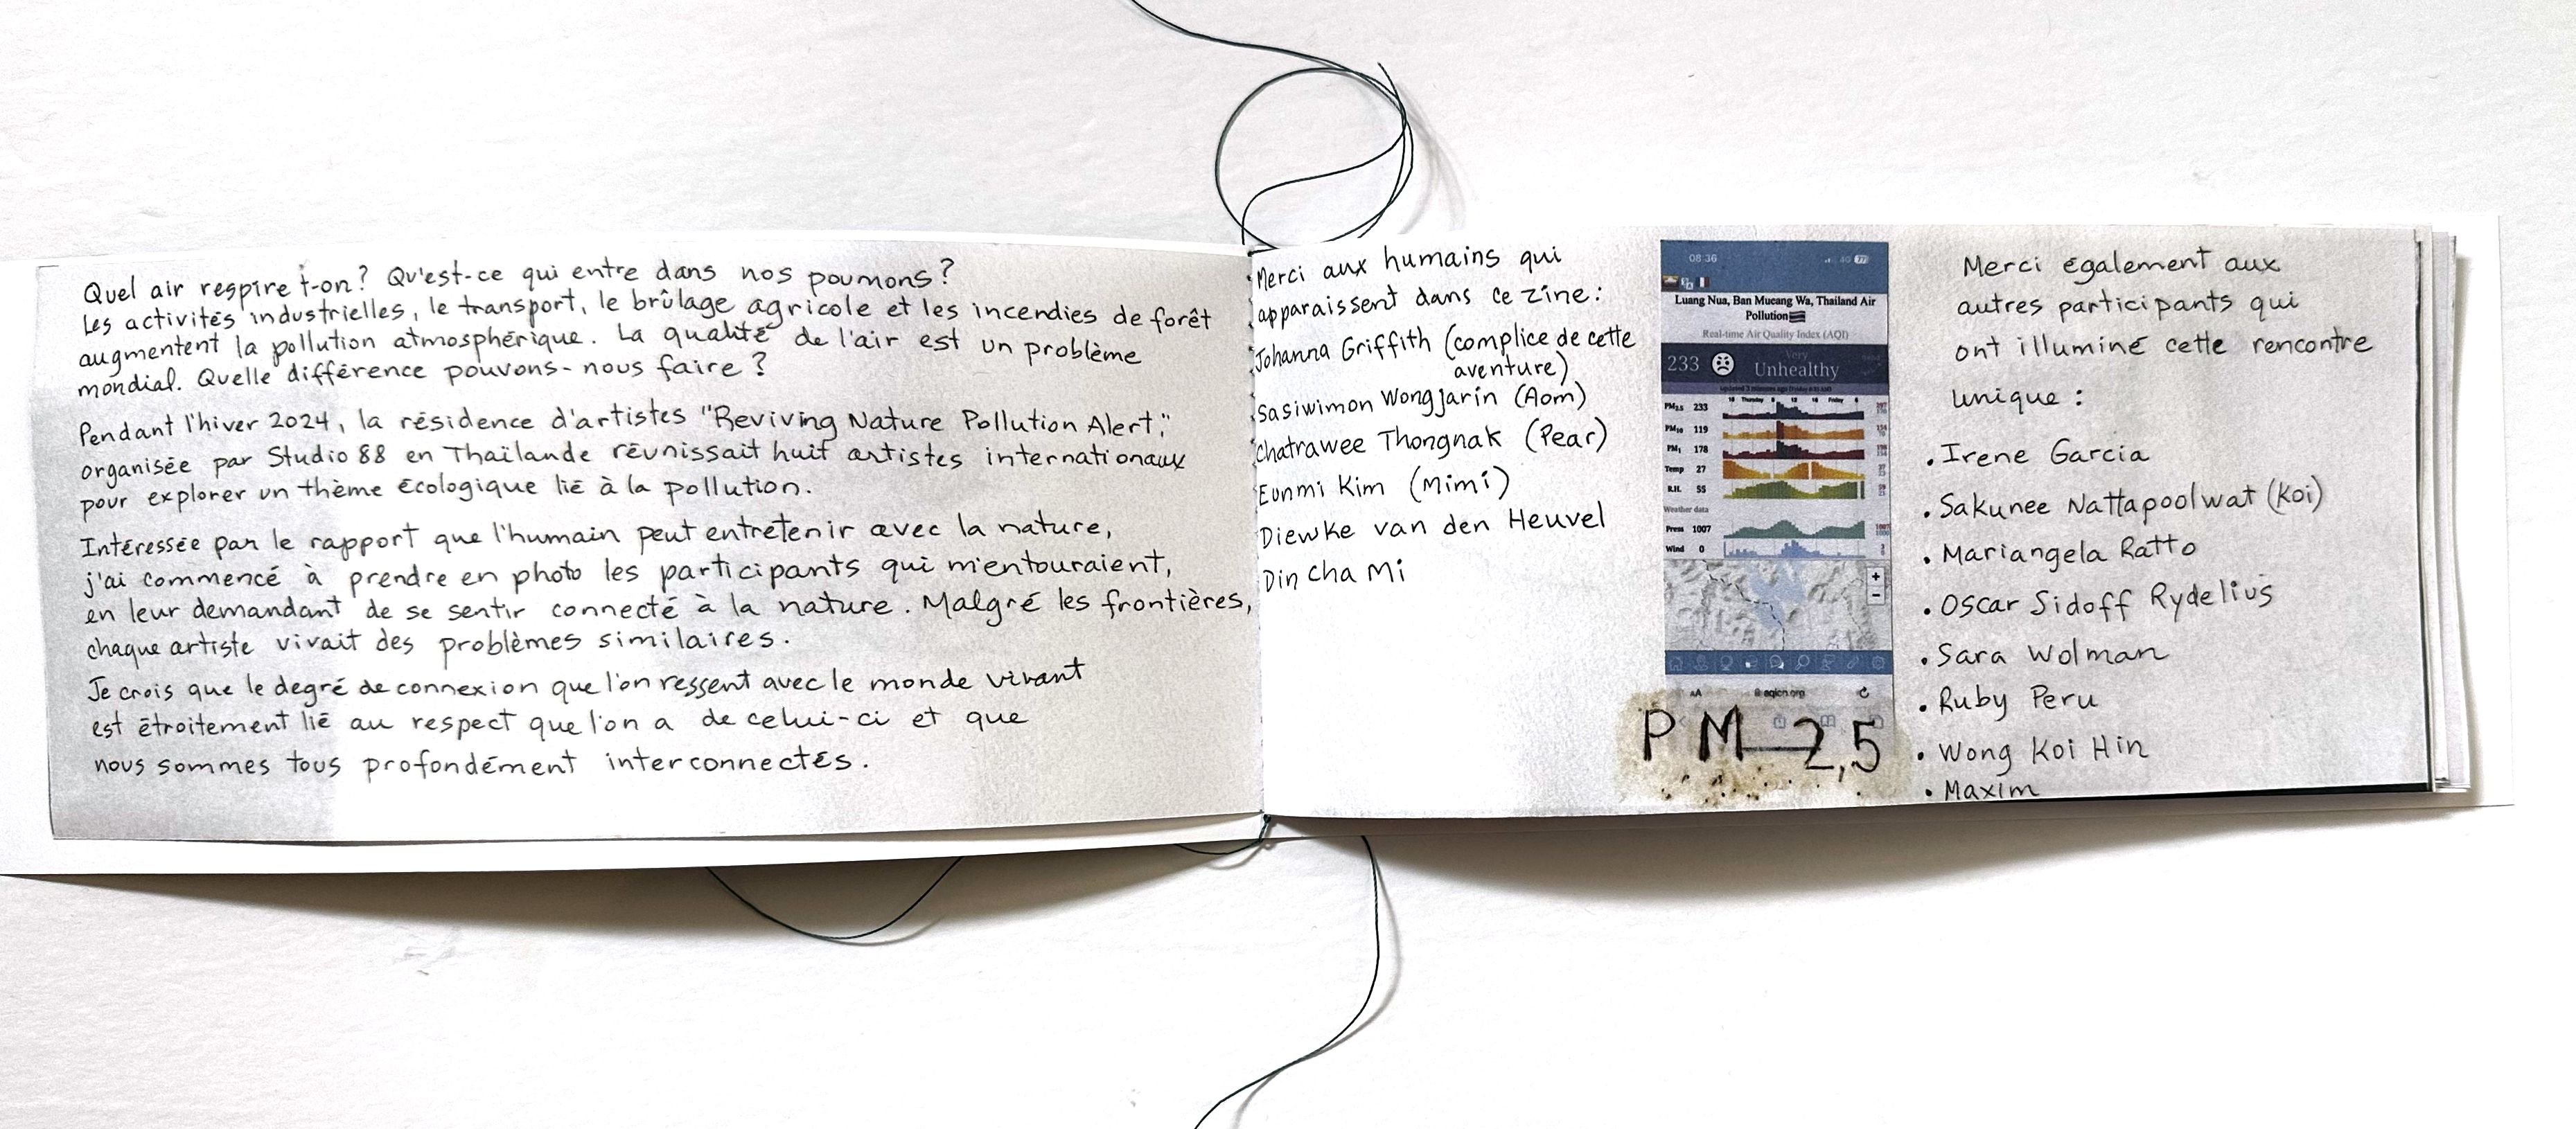 Quel air respire t-on? Qu'est-ce qui entre dans nos poumons?
Les activités industrielles, le transport, le brûlage agricole et les incendies de forêt
augmentent la pollution atmosphérique. La qualité de l'air est un problème
mondial. Quelle différence pouvons-nous faire?
Pendant l'hiver 2024, la résidence d'artistes "Reviving Nature Pollution Alert,"
organisée par Studio 88 en Thaïlande réunissait huit artistes internationaux
pour explorer un thème écologique lié à la pollution.
Intéressée par le rapport que l'humain peut entretenir avec la nature,
j'ai commencé à prendre en photo les participants qui m'entouraient,
en leur demandant de se sentir connecté à la nature. Malgré les frontières,
chaque artiste vivait des problèmes similaires.
Je crois que le degré de connexion que l'on ressent avec le monde vivant
est étroitement lié au respect que l'on a de celui-ci et que
nous sommes tous profondément interconnectés.
Merci aux humains qui
apparaissent dans ce zine:
Johanna Griffith (complice de cette
aventure)
Sasiwimon Wongjarin (Aom)
Chatrawee Thongnak (Pear)
Eunmi Kim (Mimi)
Diewke van den Heuvel
Din Cha Mi
08:36 4G 77
Luang Nua, Ban Mueang Wa, Thailand Air
Pollution
Real-time Air Quality Index (AQI)
233 Very
Unhealthy
18 Thursday 6 12 18 Friday 6
PM2.5 233
PM10 119
PM1 178
Temp 27
R.H. 55
Weather data
Press 1007
Wind 0
+
-
AA aqicn.org
PM 2,5
Merci également aux
autres participants qui
ont illuminé cette rencontre
unique:
• Irene Garcia
• Sakunee Nattapoolwat (Koi)
• Mariangela Ratto
• Oscar Sidoff Rydelius
• Sara Wolman
• Ruby Peru
• Wong Koi Hin
• Maxim